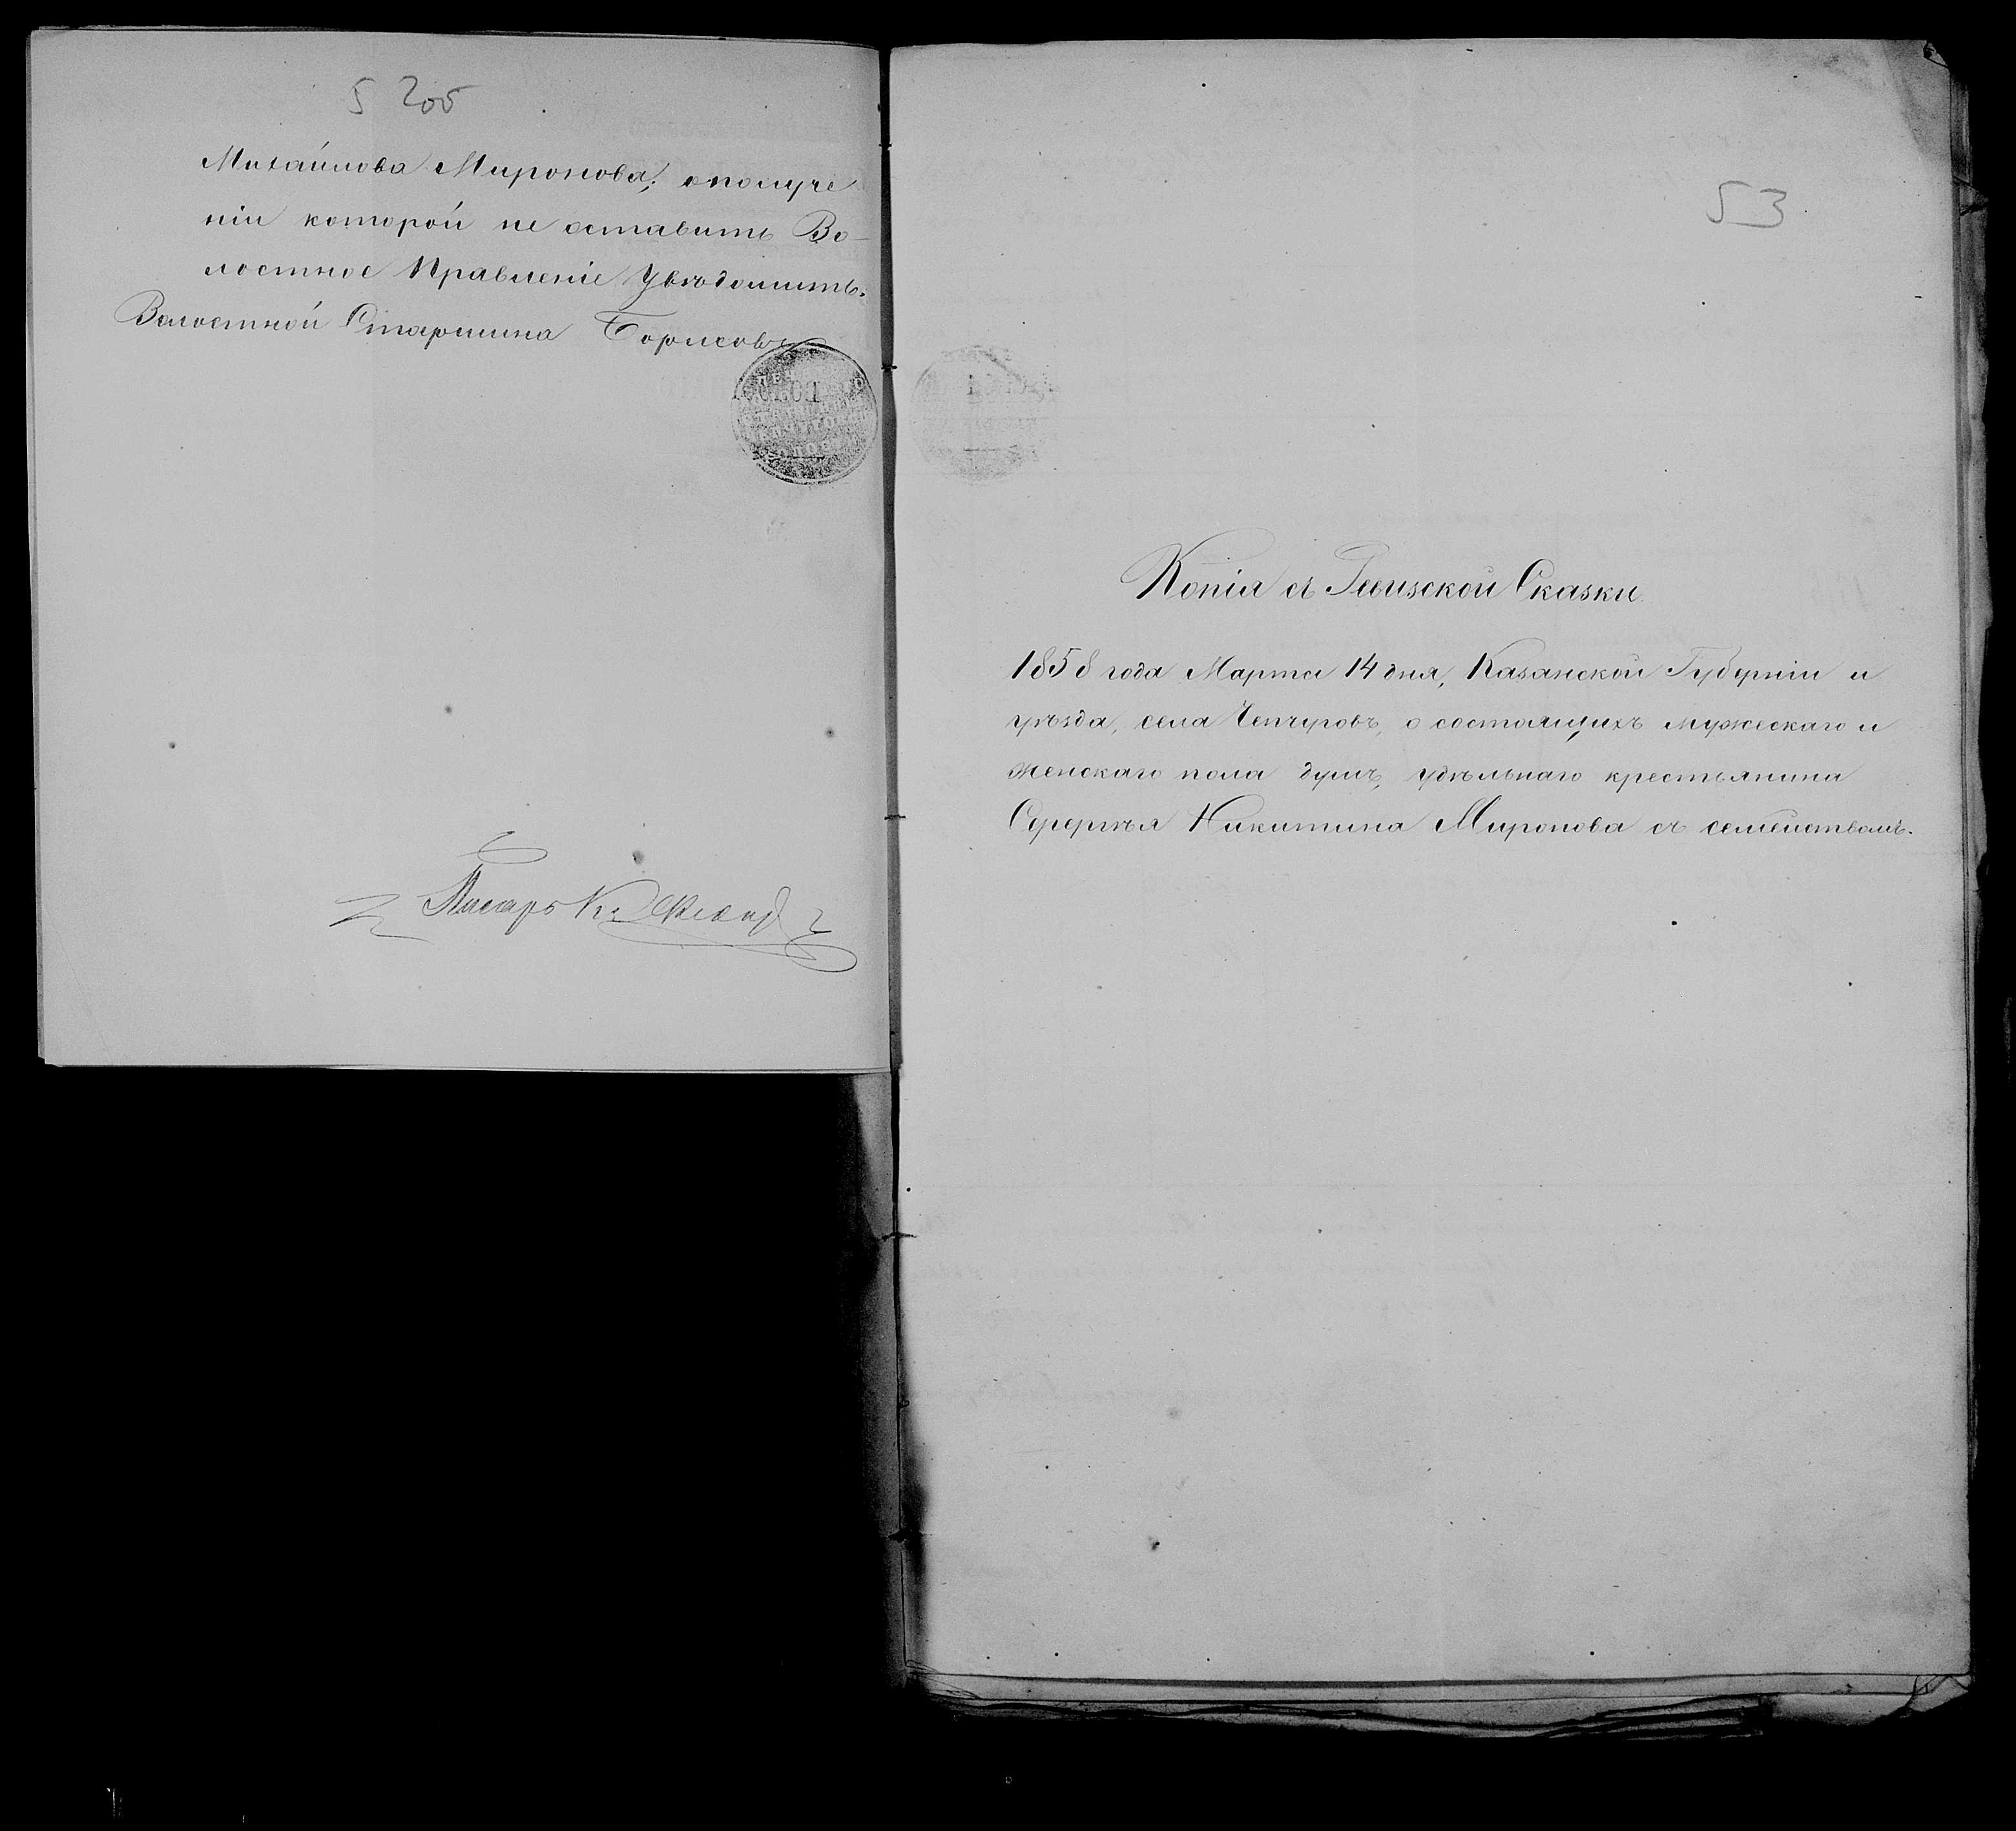 5 205
Михайлова Миронова; о получе
ніи которой не оставить Во-
лостное Правленіе Увѣдомить.
Волостной Старшина Борисовъ
Писарь
53
Копія съ Ревизской Сказки
1858 года Марта 14 дня, Казанской Губерніи и
уѣзда, села Чепчуровъ, о состоящихъ мужескаго и
женскаго пола душъ, удѣльнаго крестьянина
Сергѣя Никитина Миронова съ семействомъ.